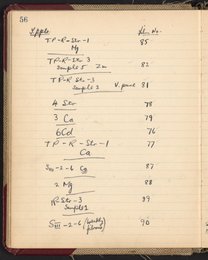 56
Apple Ph. No.
TP-R-Str-1 85
Mg
TP-R-Str 3 82
Sample 5 Zn
TP-R Str-3
Sample 3 V. pure 81
4 Str 78
3 Ca 79
6Cd 76
TP-R-Str-1 77
Ca
-2-6 Cg 87
2 Mg 88
R Str-3 89
Sample 2
SIII-2-6 90